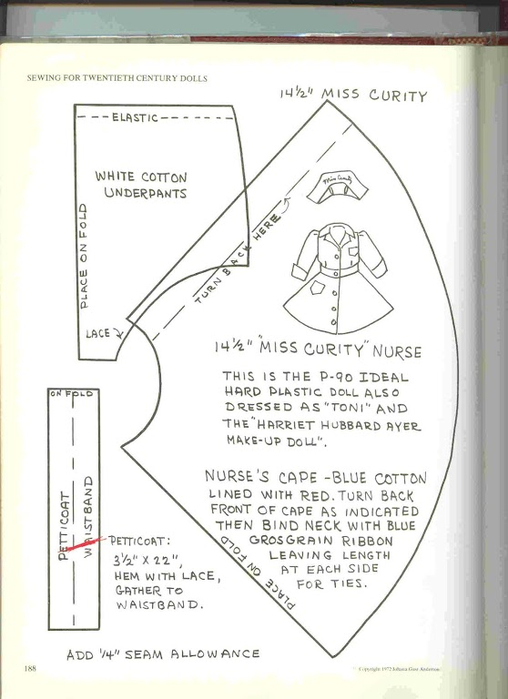 SEWING FOR TWENTIETH CENTURY DOLLS
14½" MISS CURITY
- - - ELASTIC - - - - - -
WHITE COTTON
UNDERPANTS
PLACE ON FOLD
LACE
TURN BACK HERE
Miss Curity
14½" "MISS CURITY" NURSE
THIS IS THE P-90 IDEAL
HARD PLASTIC DOLL ALSO
DRESSED AS "TONI" AND
THE "HARRIET HUBBARD AYER
MAKE-UP DOLL".
NURSE'S CAPE - BLUE COTTON
LINED WITH RED. TURN BACK
FRONT OF CAPE AS INDICATED
THEN BIND NECK WITH BLUE
GROSGRAIN RIBBON
LEAVING LENGTH
AT EACH SIDE
FOR TIES.
PLACE ON FOLD
ON FOLD
PETTICOAT
WAISTBAND
PETTICOAT:
3½" X 22",
HEM WITH LACE,
GATHER TO
WAISTBAND.
ADD ¼" SEAM ALLOWANCE
188
Copyright 1972 Johana Gast Anderton